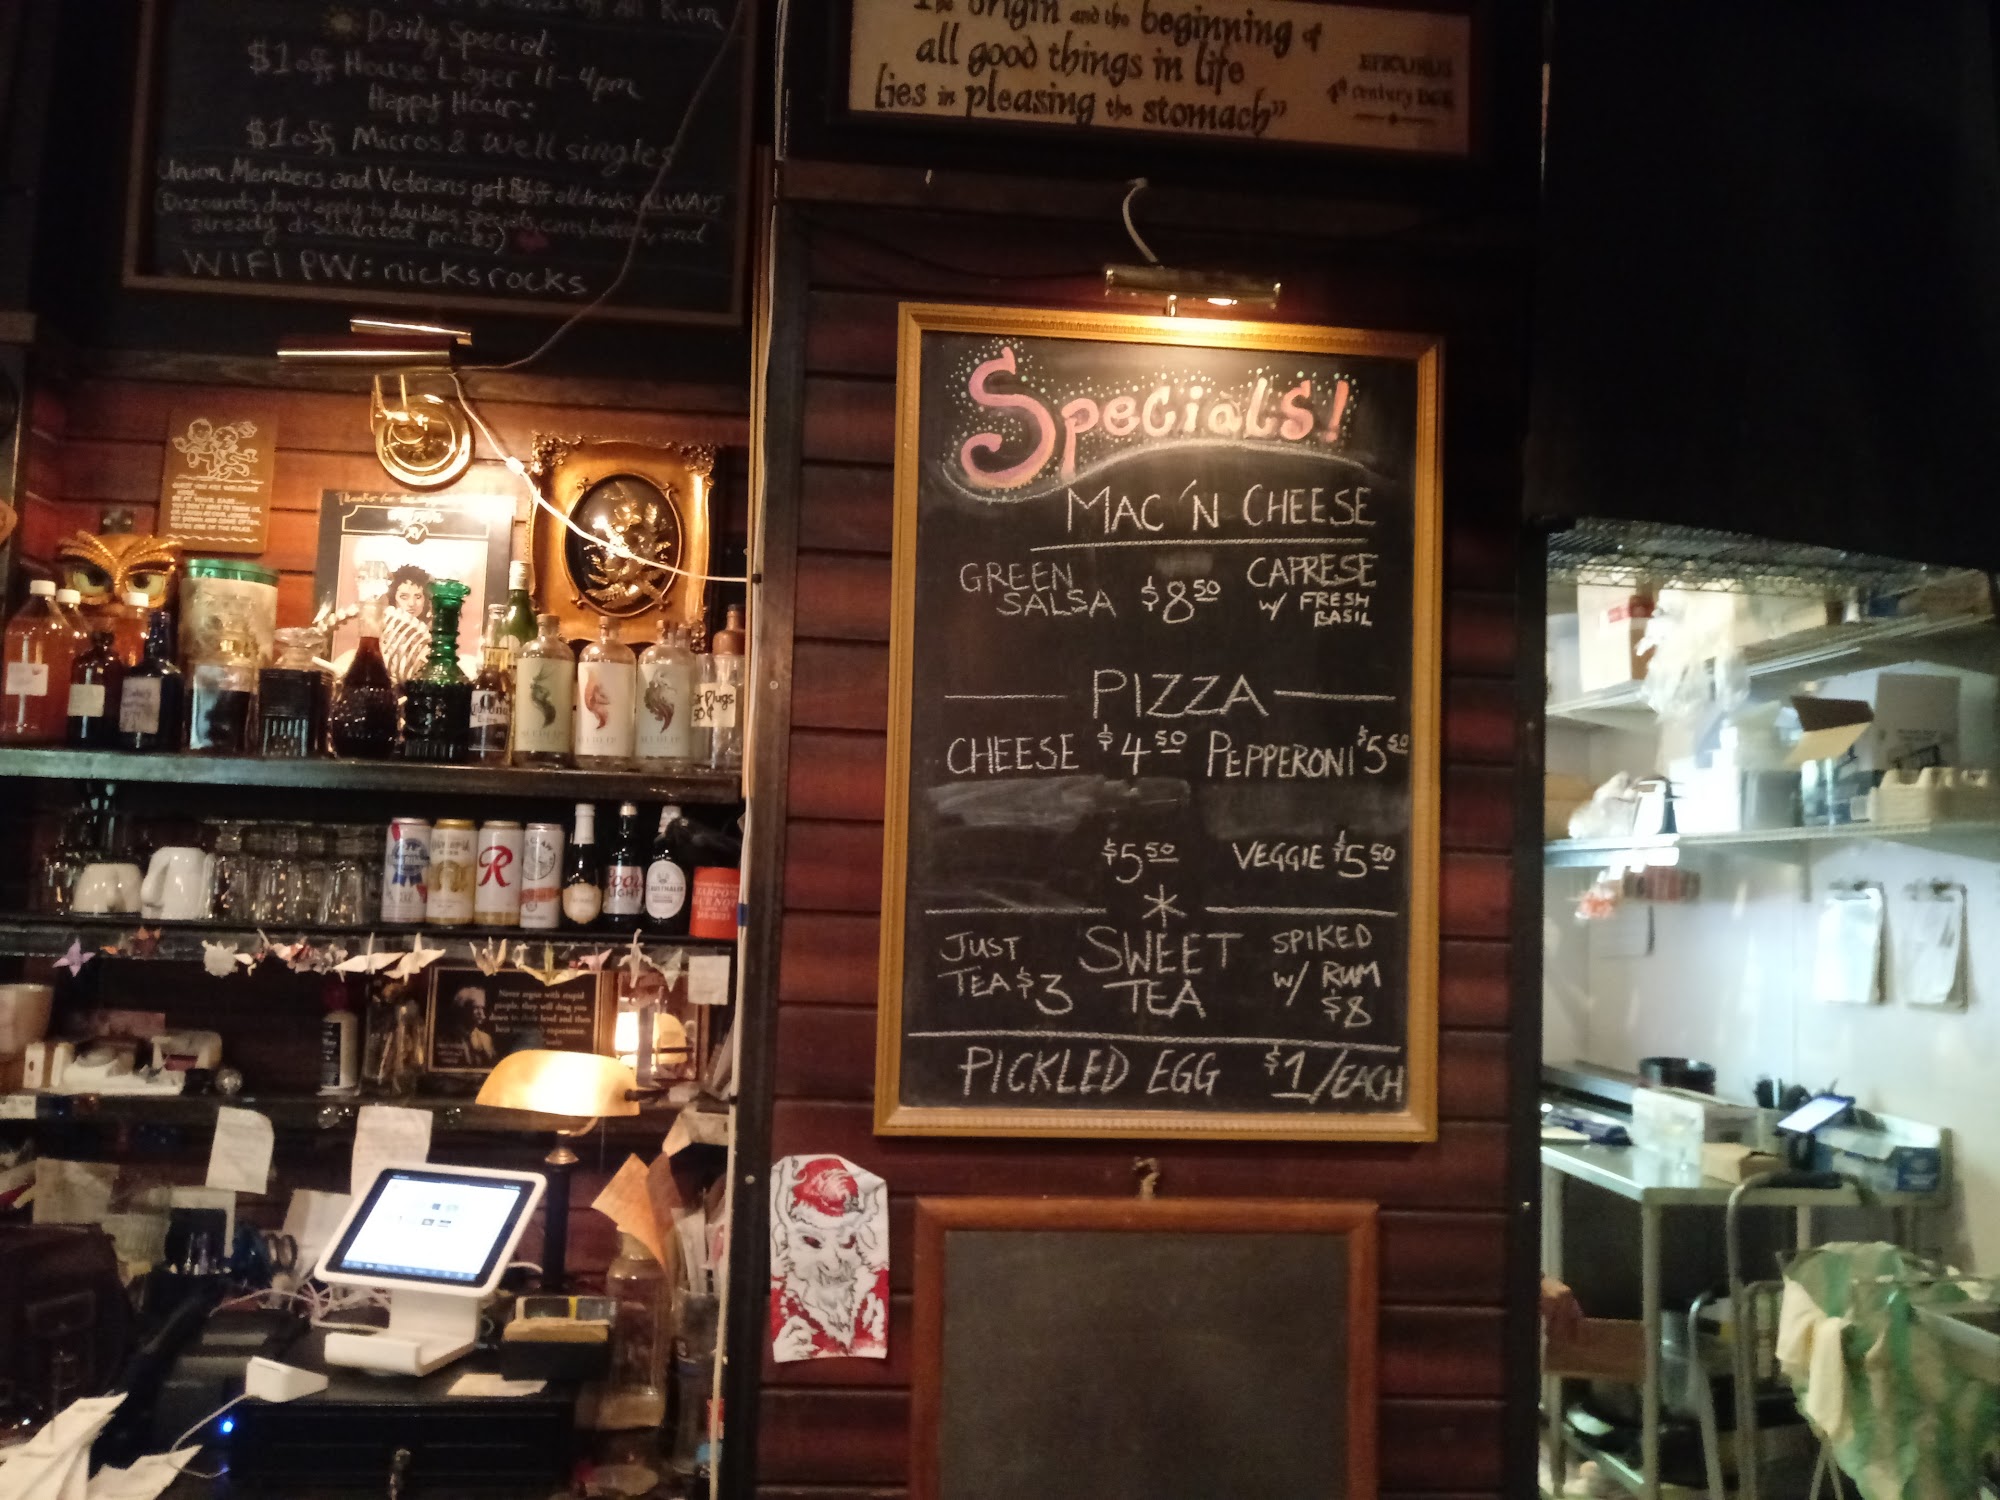 off All Rum
Daily Special:
$1 off House Lager 11-4pm
Happy Hour:
$1 off Micros & Well singles
Union Members and Veterans get off all drinks ALWAYS
(Discounts don't apply to doubles, specials, cans, bottles, and
already discounted prices)
WIFI PW: nicksrocks
The origin and the beginning of
all good things in life
lies in pleasing the stomach"
EPICURUS
4th century BCE
Specials!
MAC 'N CHEESE
GREEN
SALSA
$8 50
CAPRESE
W/ FRESH
BASIL
PIZZA
CHEESE $4 50 PEPPERONI $5 50
$5 50 VEGGIE $5 50
JUST
TEA $3
SWEET
TEA
SPIKED
W/ RUM
$8
PICKLED EGG $1/EACH
Thanks for the
Plugs
50¢
Corona
R
Coors
LIGHT
Never argue with stupid
people, they will drag you
down to their level and then
beat experience.